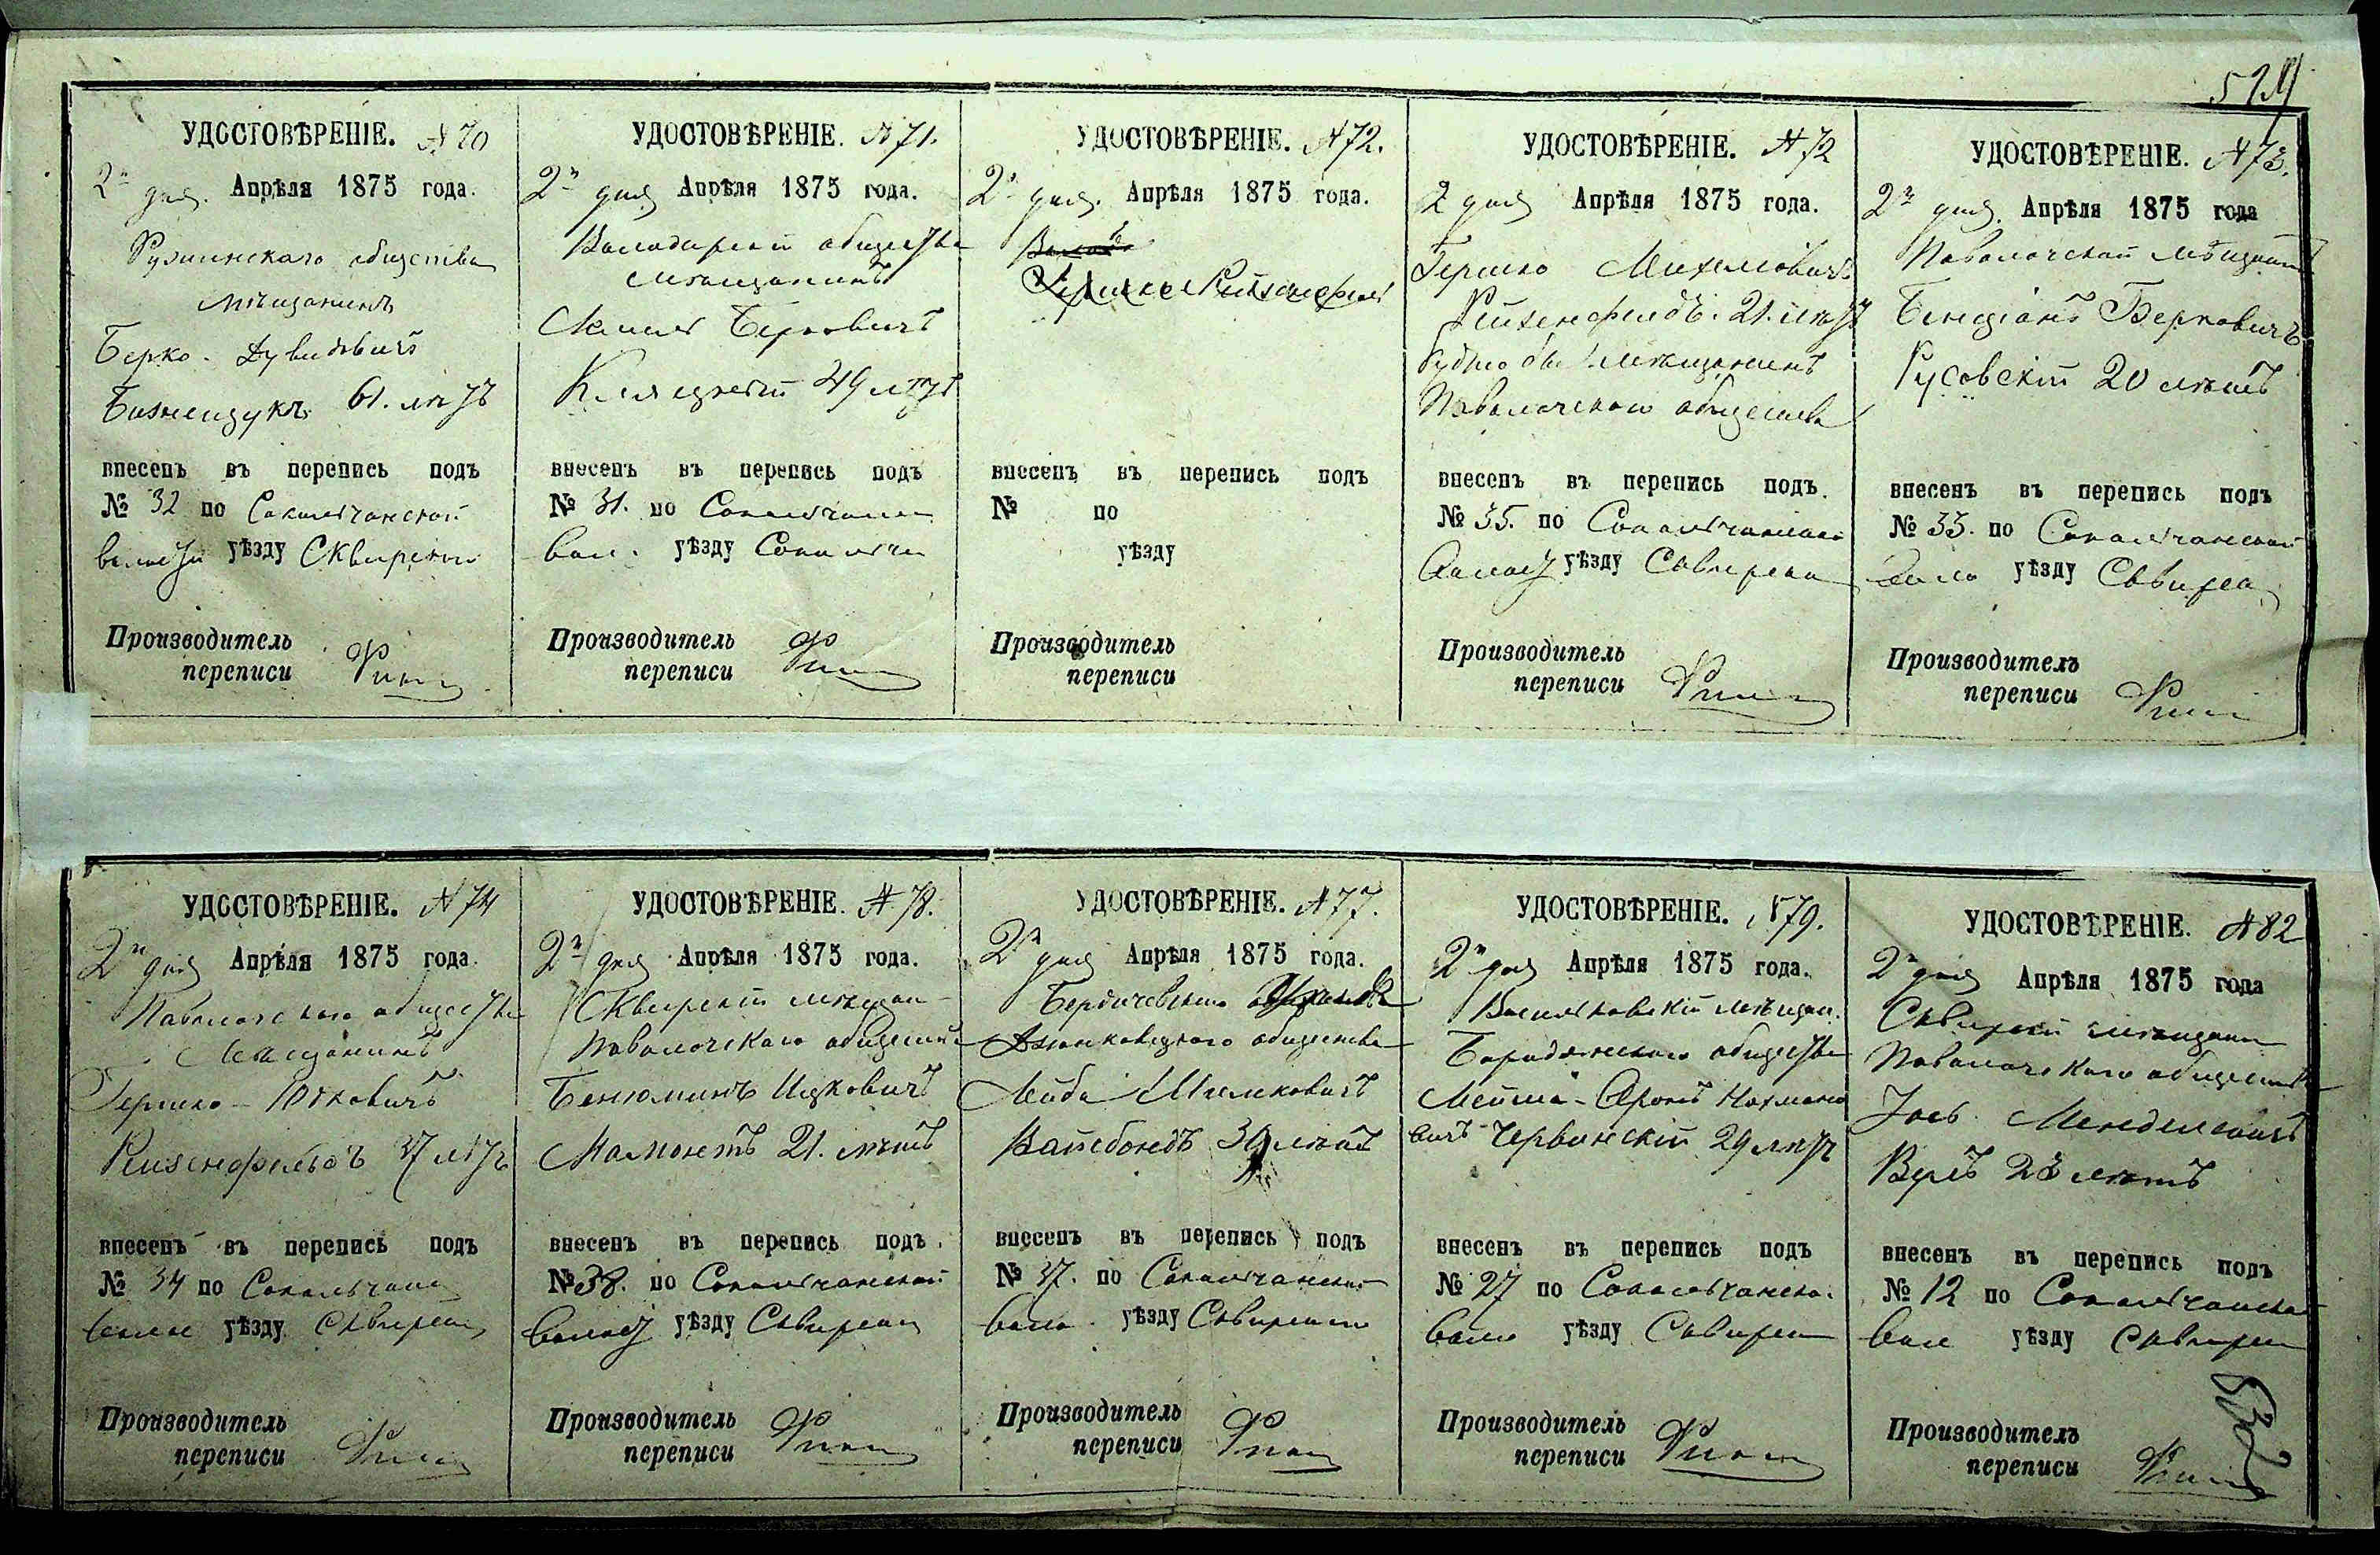 529
УДОСТОВѢРЕНІЕ. № 70
2го дня. Апрѣля 1875 года.
Ружинскаго общества
мѣщанинъ
Берко - Дувидовичъ
61. лѣтъ
внесенъ въ перепись подъ
№ 32 по Сокольчанской
волости уѣзду Сквирскому
Производитель
переписи
УДОСТОВѢРЕНІЕ. № 71.
2го дня Апрѣля 1875 года.
общества
мѣщанинъ
Берковичъ
49 лѣтъ
внесенъ въ перепись подъ
№ 31. по Сокольчанск
вол. уѣзду
Производитель
переписи
УДОСТОВѢРЕНІЕ. № 72.
2го дня. Апрѣля 1875 года.
внесенъ въ перепись подъ
№ по
уѣзду
Производитель
переписи
УДОСТОВѢРЕНІЕ. № 72
2 дня Апрѣля 1875 года.
Гершко Михелевичъ
Рейзенфельдъ. 21. лѣтъ
мѣщанинъ
Паволочскаго общества
внесенъ въ перепись подъ
№ 35. по Сокольчанской
волост уѣзду Сквирском
Производитель
переписи
УДОСТОВѢРЕНІЕ. № 73.
2го дня. Апрѣля 1875 года
Паволочскій мѣщанинъ
Бенціонъ Берковичъ
Русовскій 20 лѣтъ
внесенъ въ перепись подъ
№ 33. по Сокольчанской
воло уѣзду Сквирск
Производитель
переписи
УДОСТОВѢРЕНІЕ. № 74
2го дня Апрѣля 1875 года.
Паволочскаго общества
Мѣщанинъ
Гершко - Юткович
Рейзенфельдъ 37 лѣтъ
внесенъ въ перепись подъ
№ 34 по Сокольчанск
волос уѣзду Сквирском
Производитель
переписи
УДОСТОВѢРЕНІЕ. № 78.
2го дня Апрѣля 1875 года.
Сквирскій мѣщан-
Паволочскаго общества
Бенюминъ Ицковичъ
Мамонтъ 21. лѣтъ
внесенъ въ перепись подъ
№ 38. по Сокольчанской
волост уѣзду Сквирском
Производитель
переписи
УДОСТОВѢРЕНІЕ. № 77.
2го дня Апрѣля 1875 года.
Бердичевскаго
Дзюнковецкаго общества
Лейба Шмилковичъ
Вайсбондъ 39 лѣтъ
внесенъ въ перепись подъ
№ 37. по Сокольчанской
воло. уѣзду Сквирском
Производитель
переписи
УДОСТОВѢРЕНІЕ. № 79.
2го дня Апрѣля 1875 года.
Васильковскій мѣщан.
Бородянскаго общества
Аронъ Нахмано
вичъ Червинскій 29 лѣтъ
внесенъ въ перепись подъ
№ 27 по Сокольчанско.
воло уѣзду Сквирск
Производитель
переписи
УДОСТОВѢРЕНІЕ. № 82
2го дня Апрѣля 1875 года
Сквирскій мѣщанин
Паволочскаго общества
Іось Менделевичъ
28 лѣтъ
внесенъ въ перепись подъ
№ 12 по Сокольчанской
воло уѣзду Сквирск
Производитель
переписи